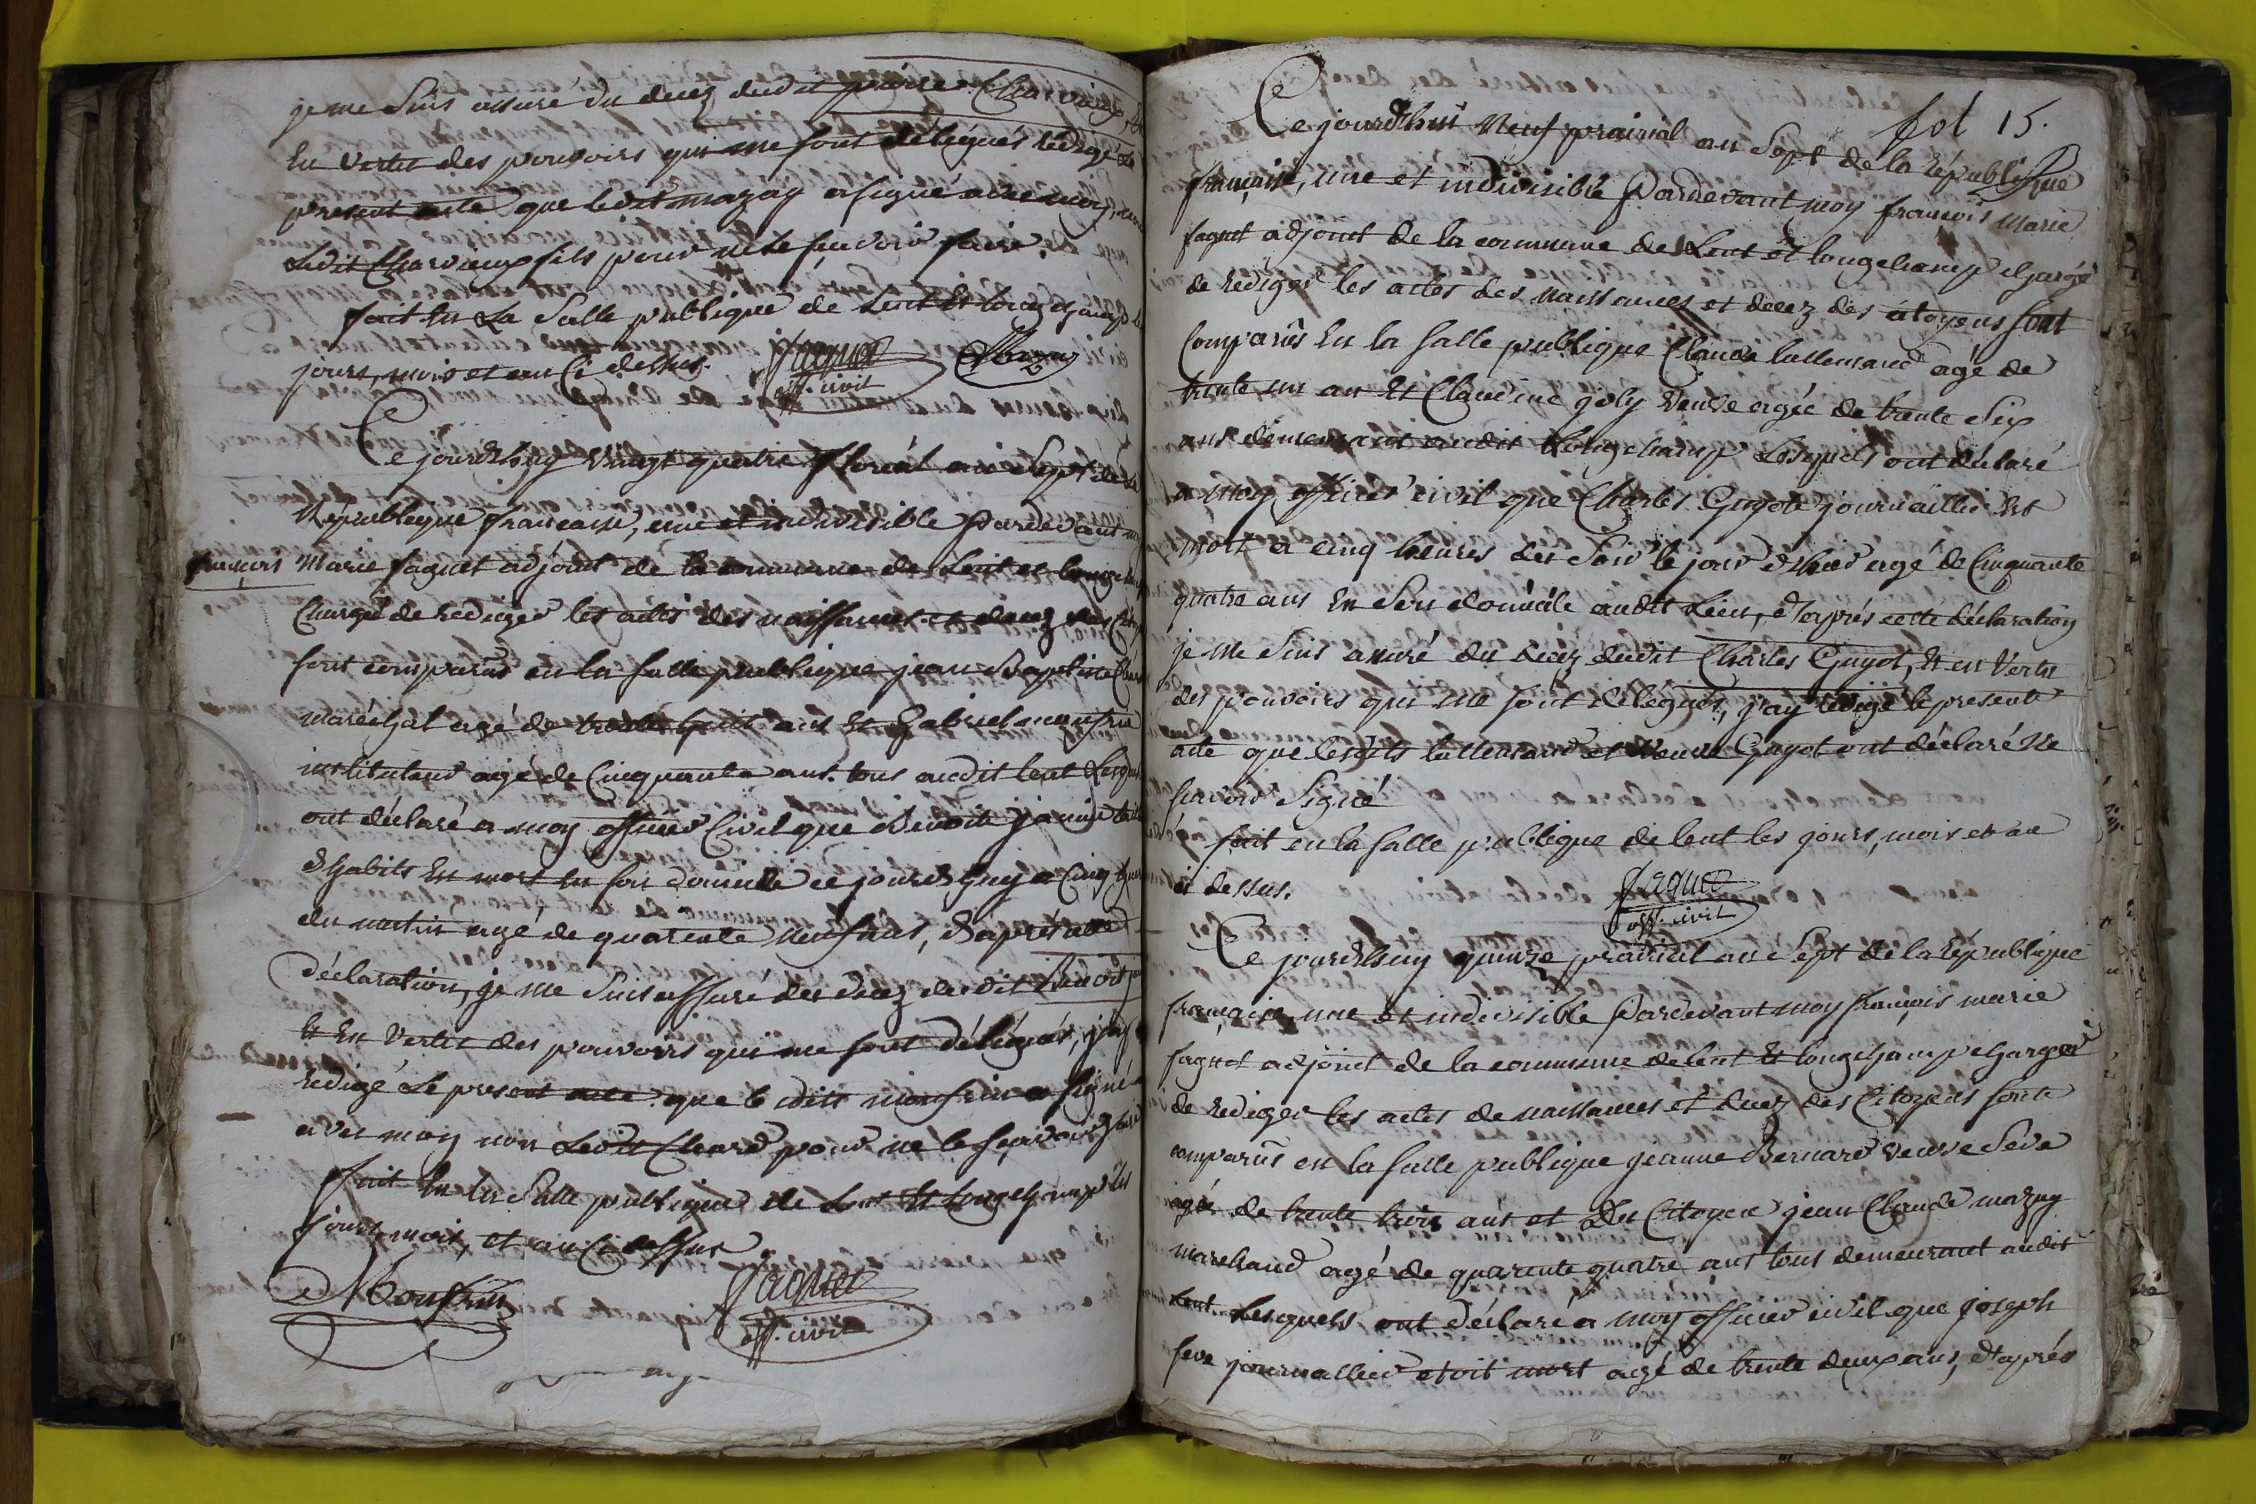 je me suis assuré du decez dudit pierre Charvieux, Et
En vertu des pouvoirs qui me sont délégués redigé Le
present acte que ledit mazuy a signé avec moy, non
Ledit Charvieux fils pour ne le sçavoir faire.
fait En La Salle publique de Lent Et longchamp Le
jours, mois et an Ci dessus. faguet Mazuy
off. civil
Ce jourd'huy vingt quatre floreal an Sept de La
République francaise, une et indivisible Pardevant moy
françois Marie faguet adjoint de la commune de Lent et longchamp
Chargé de rediger les actes des naissances et decez des Citoy
sont comparus en la salle publique jean Baptiste Chard
maréchal agé de trente huit ans Et Gabriel monfrin
instituteur agé de Cinquante ans. tous audit lent Lesquels
ont déclaré a moy officier Civil que Benoit
d'habits Est mort En son domicile ce jourd'huy a Cinq heures
du matin agé de quarente neuf ans, d'aprés cette
déclaration, je me suis assuré du decez dudit Benoit
Et En vertu des pouvoirs qui me sont délégués, j'ay
redigé Le present acte que le dit monfrin a signé
avec moy non Ledit Chard pour ne le sçavoir faire
fait En La Salle publique de Lent Et Longchamp Les
jours, mois, et an Ci dessus
Monfrin faguet
off. civil
fol 15.
Ce jourd'hui neuf prairial an Sept de la République
française, une et indivisible Pardevant moy francois Marie
faguet adjoint de la commune de Lent et longchamp chargé
de rediger les actes des naissances et decez des citoyens sont
comparûs En la salle publique Claude lallemand agé de
trente un an Et Claudine joly veuve agée de trente Six
ans demeurant audit Longchamp Lesquels ont déclaré
a moy officier civil que Charles Guyot journaillier Est
mort a cinq heures du Soir le jour d'hier agé de Cinquante
quatre ans En Son domicile audit Lieu, d'aprés cette déclaration
je me suis assuré du decez dudit Charles Guyot, Et en vertu
des pouvoirs qui me sont délégués, j'ay redigé le present
acte que lesdits lallemand et veuve Guyot ont déclaré ne
savoir Signé
fait en la salle publique de lent les jours, mois et an
ci dessus. faguet
off. civil
Ce jourd'huy quinze prairial an Sept de la République
française, une et indivisible Pardevant moy françois marie
faguet adjoint de la commune de lent Et longchamp chargé
de rediger les actes de naissances et decez des Citoyens sont
comparûs en la salle publique jeanne Bernard veuve Seve
agée de trente trois ans et Du Citoyen jean Claude mazuy
marchand agé de quarente quatre ans tous demeurant audit
Lent Lesquels ont déclaré a moy officier civil que joseph
seve journallier etoit mort agé de trente deux ans, d'aprés